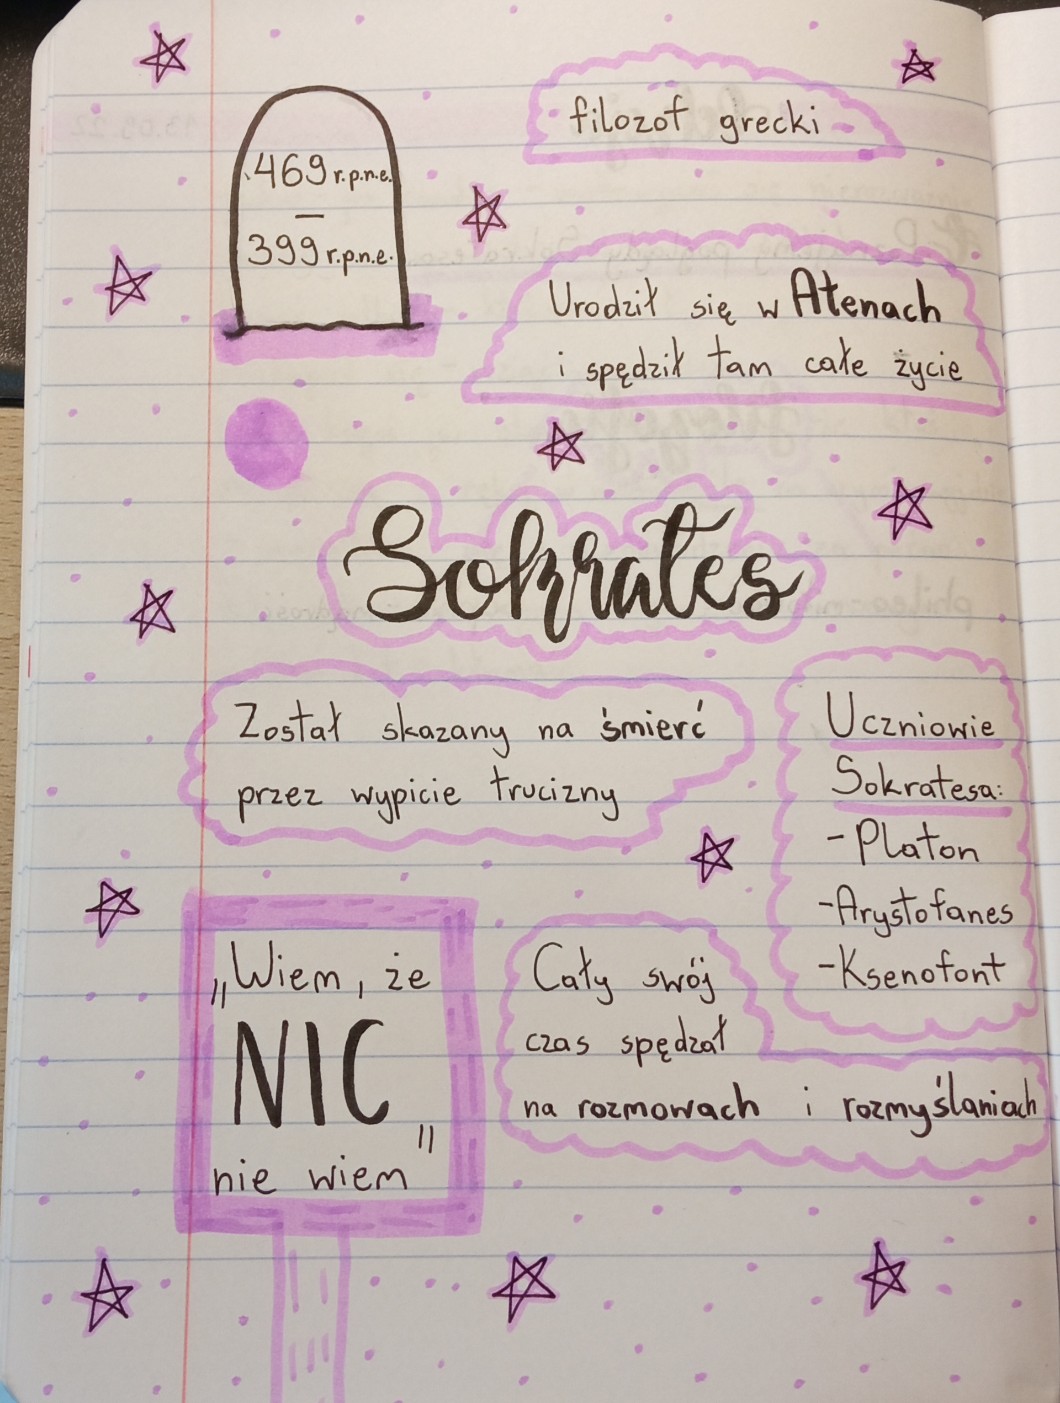 469 r.p.n.e.
–
399 r.p.n.e.
filozof grecki
Urodził się w Atenach
i spędził tam całe życie
Sokrates
Został skazany na śmierć
przez wypicie trucizny
Uczniowie
Sokratesa:
- Platon
- Arystofanes
- Ksenofont
„Wiem, że
NIC
nie wiem”
Cały swój
czas spędzał
na rozmowach i rozmyślaniach